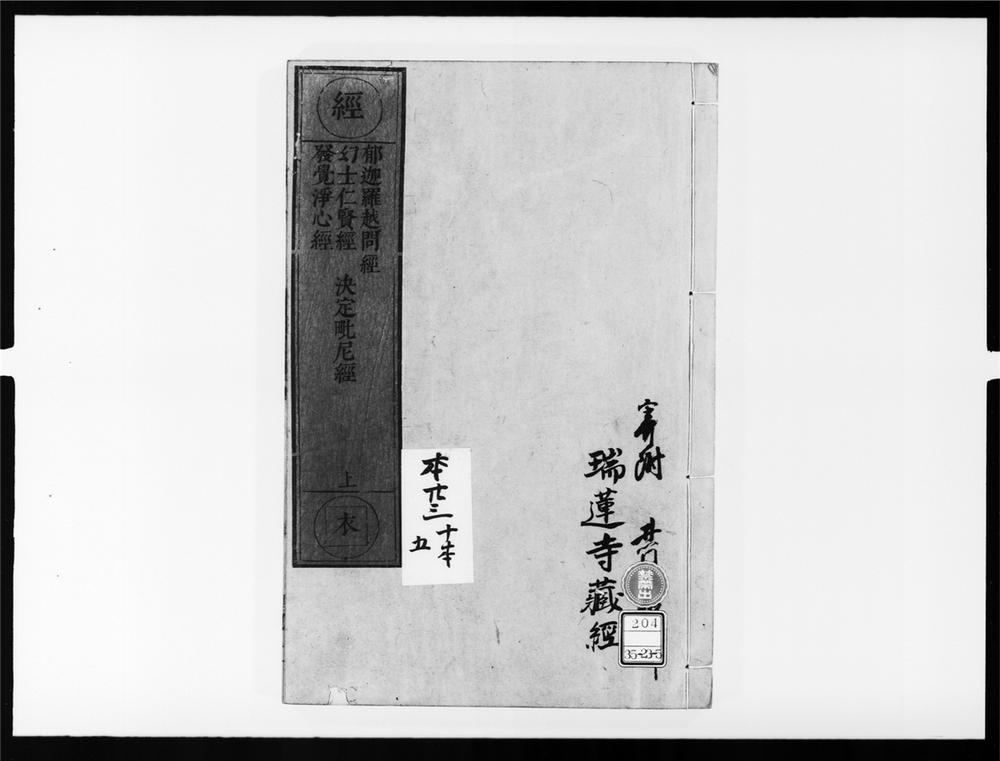 經
郁迦羅越問經
幻士仁賢經 決定毗尼經
發覺淨心經
上
衣
寄附
瑞蓮寺藏經
本廿三
十本
五
禁帯出
204
35-23-5